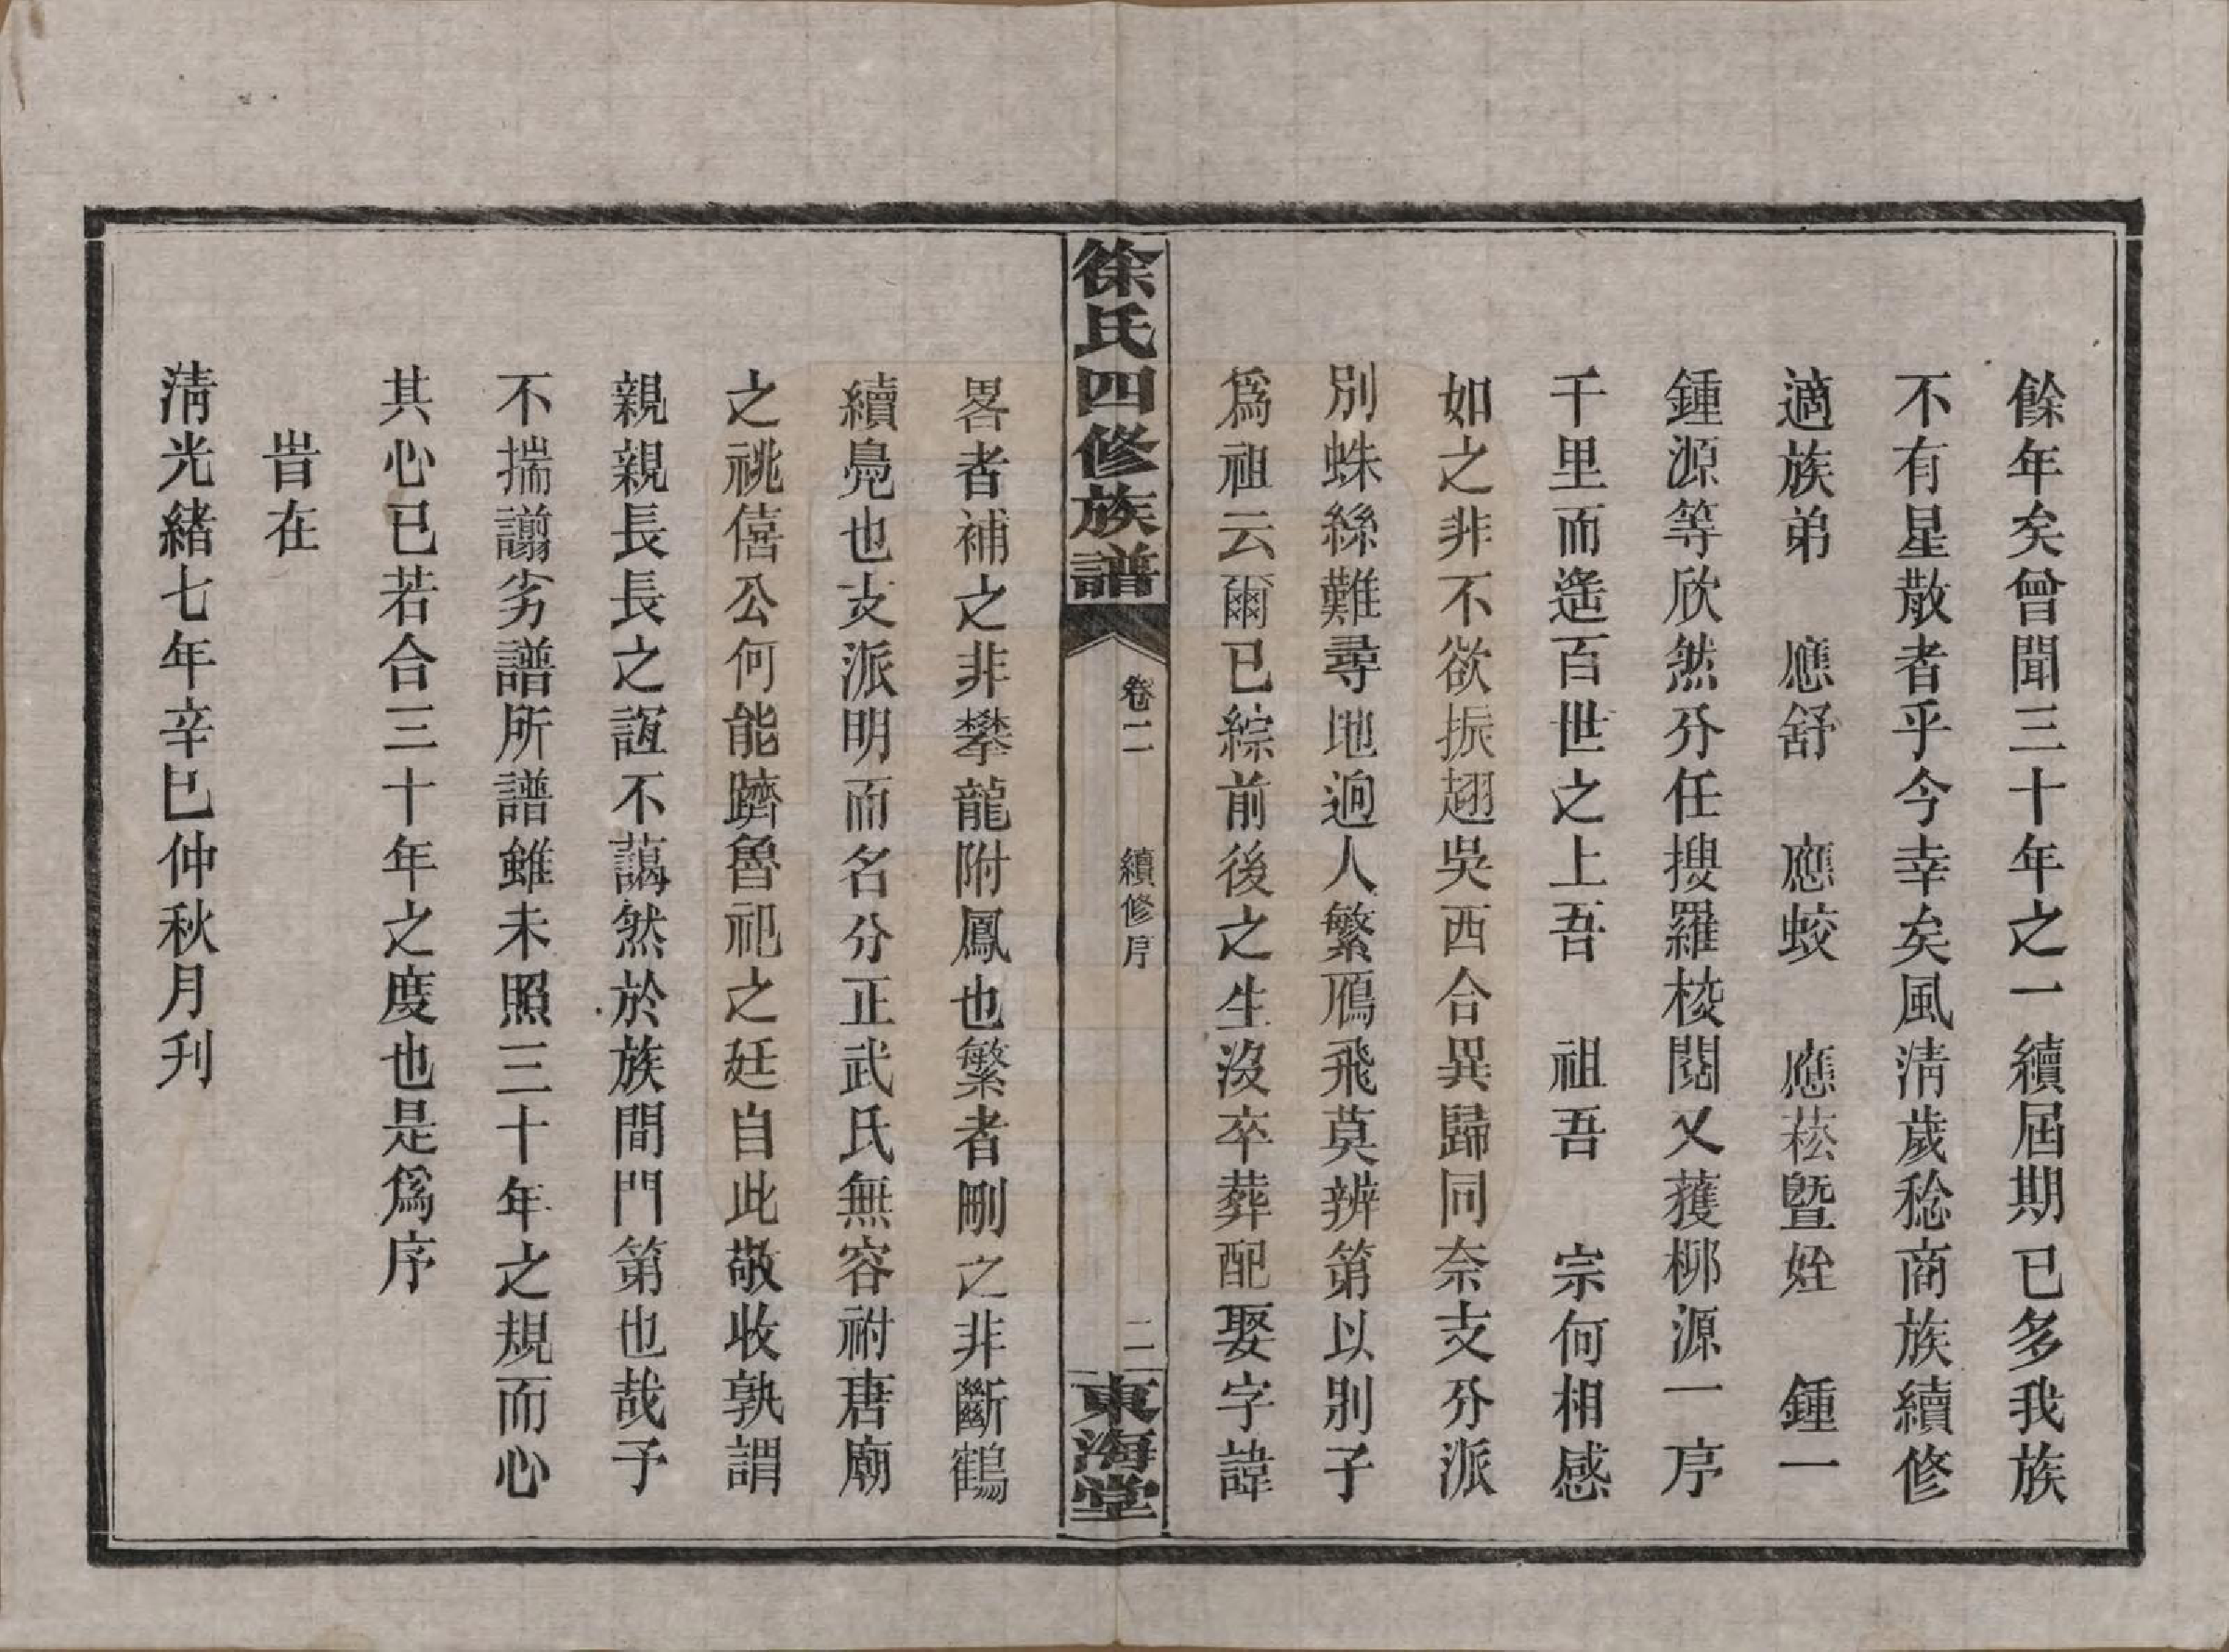 餘年矣曾聞三十年之一續屆期已多我族
不有星散者乎今幸矣風淸歲稔商族續修
適族弟　應舒　應蛟　應菘曁姪　鍾一
鍾源等欣然分任搜羅校閱又獲柳源一序
千里而遙百世之上吾　祖吾　宗何相感
如之非不欲振翅吳西合異歸同奈支分派
別蛛絲難尋地逈人繁鴈飛莫辨第以別子
爲祖云爾已綜前後之生沒卒葬配娶字諱
徐氏四修族譜
卷二　續修序　二
東海堂
畧者補之非攀龍附鳳也繁者刪之非斷鶴
續鳧也支派明而名分正武氏無容祔唐廟
之祧僖公何能躋魯祀之廷自此敬收孰謂
親親長長之誼不藹然於族間門第也哉予
不揣譾劣譜所譜雖未照三十年之規而心
其心已若合三十年之度也是爲序
旹在
淸光緒七年辛巳仲秋月刋